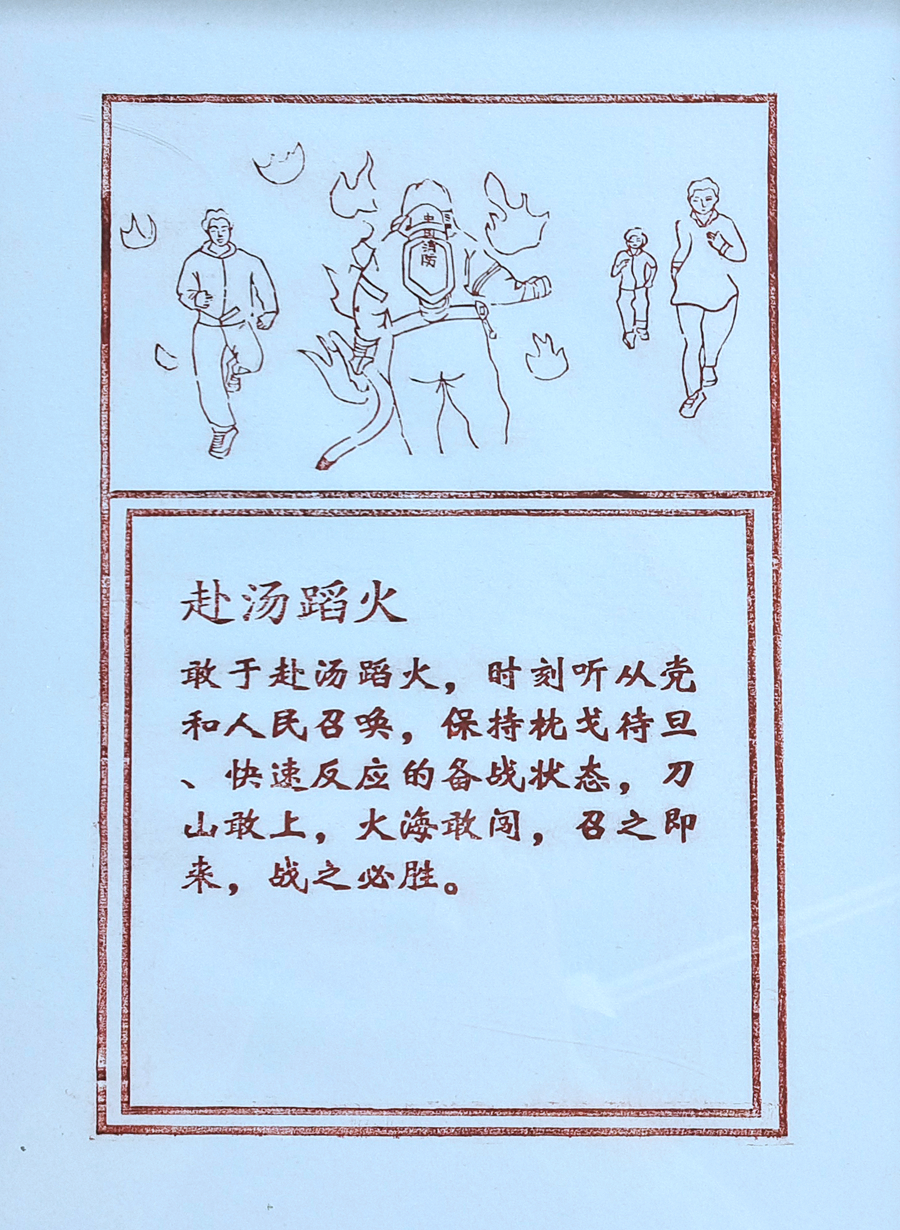 中国消防
赴汤蹈火
敢于赴汤蹈火，时刻听从党
和人民召唤，保持枕戈待旦
、快速反应的备战状态，刀
山敢上，火海敢闯，召之即
来，战之必胜。